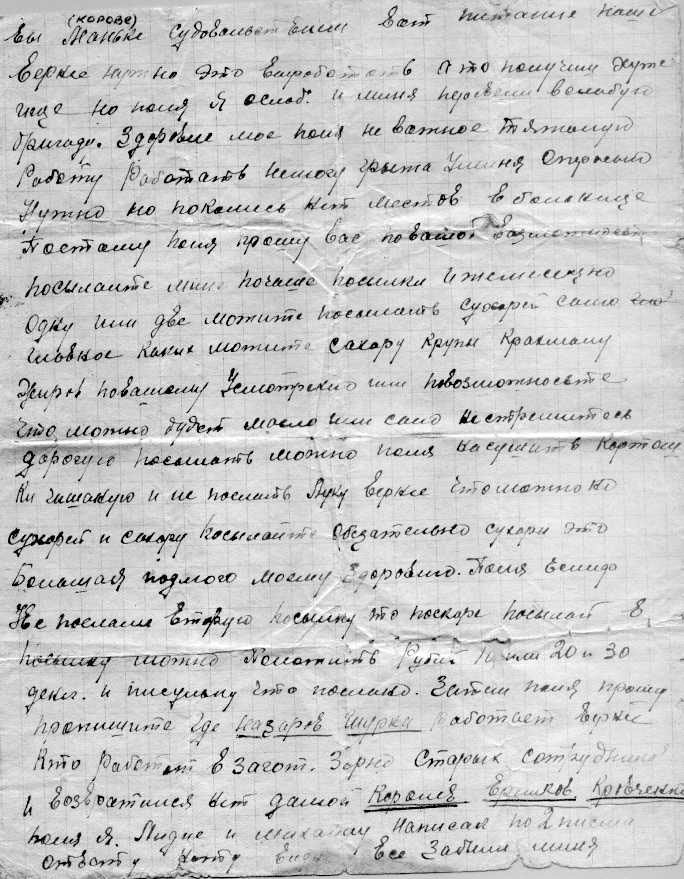 (КОРОВЕ)
Маньке
нужно это выработать а то получим хуже
еще но поля я ослаб. и миня перевели вслабую
бригаду. Здоровие мое поля не важное тяжолую
Работу Работать немогу грыжа Уминя
Нужно но покамись нет местов в больнице
поетаму поля прошу вас повашой
посылаите мине почаще посылки ижемесецно
одну или две можите посылать сухарей само
главное каких можите сахару крупы крахмалу
Жиров повашому Усмотрению или повозможносьте
что можно будет масло или сало нестремитесь
дорогую посылать можно поля насушить картош
ки и не послать Луку
сухарей и сахару посылайте обезательно сухари это
Большая подмога моему Здоровию. Поля
Не послали вторую посылку то поскаре посылай в
посылку можно положить Рубл 10 или 20 и 30
денег. и письмо что послано. Затем поля прошу
пропишите где Назаров Шурка Работает
Кто Работает в Загот. Зерно старых
и Возвратился нет дамой Короля Кравченко
поля я. Лидие и Михаилу написал по 2 писма
ответу нету Все Забыли миня